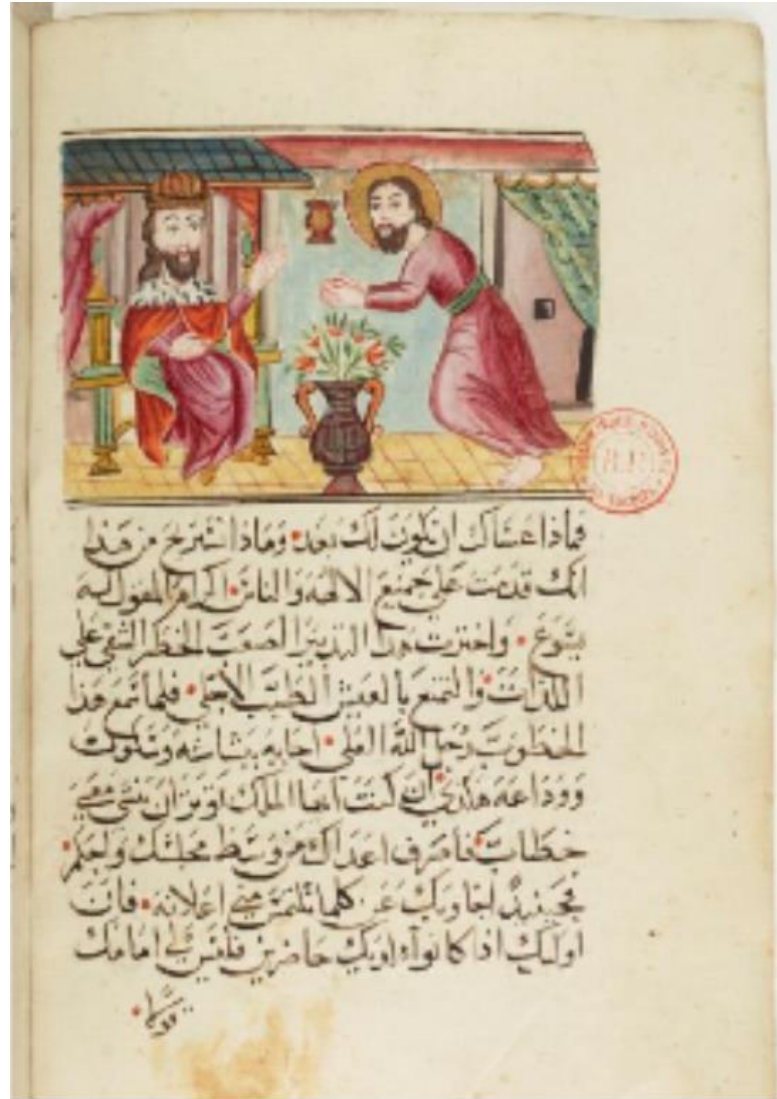 فماذا عساك ان يكون لك بعد وماذا تترجح من هذا
انك قدمت على جميع الالهة والناس المقول له
يسوع واخترت هذا التدبير الصعب الخطر الشقي على
اللذات والتمتع بالعيش الطيب الاجلي فلما سمع هذا
الخطوب رجل الله العلي اجابه ببشاشة وسلوك
ووداعة هكذا ان كنت ايها الملك تريد ان مني
خطاب فاصرف اعداك من وسط مجلسك واجلهم
فحينيذ اجاوبك عن كلما تلتمس مني اعلانه فان
اوليك اذا كانوا حاضرين فليس لي امامك